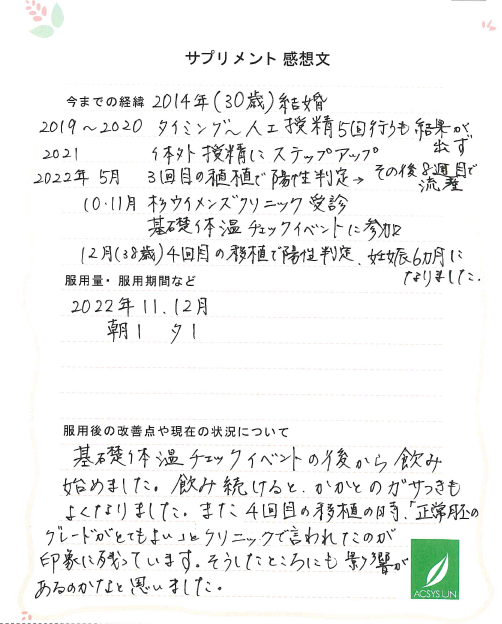 サプリメント 感想文
今までの経緯 2014年(30歳)結婚
2019～2020 タイミング～人工授精5回行うも結果が出ず
2021 体外授精にステップアップ
2022年5月 3回目の移植で陽性判定→その後8週目で流産
10.11月 杉ウイメンズクリニック受診
基礎体温チェックイベントに参加
12月(38歳)4回目の移植で陽性判定、妊娠6カ月になりました.
服用量・服用期間など
2022年11.12月
朝1 夕1
服用後の改善点や現在の状況について
基礎体温チェックイベントの後から飲み
始めました。飲み続けると、かかとのガサつきも
よくなりました。また4回目の移植の時、「正常胚の
グレードがとてもよい」とクリニックで言われたのが
印象に残っています。そうしたところにも影響が
あるのかなと思いました。
ACSYSUN